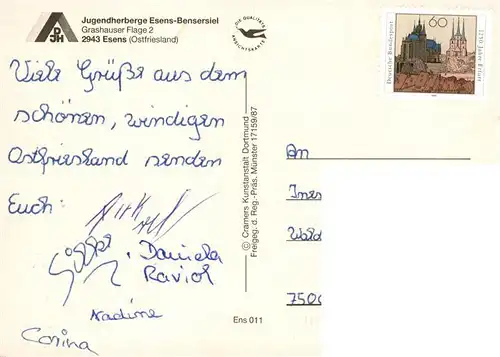 DJH
Jugendherberge Esens-Bensersiel
Grashauser Flage 2
2943 Esens (Ostfriesland)
DIE QUALITÄTS
ANSICHTSKARTE
60
Deutsche Bundespost
1250 Jahre Erfurt
Viele Grüße aus dem
schönen, windigen
Ostfriesland senden
Euch:
Daniela
Raviol
Nadine
Corina
© Cramers Kunstanstalt Dortmund
Freigeg. d. Reg.-Präs. Münster 17159/87
Ens 011
An